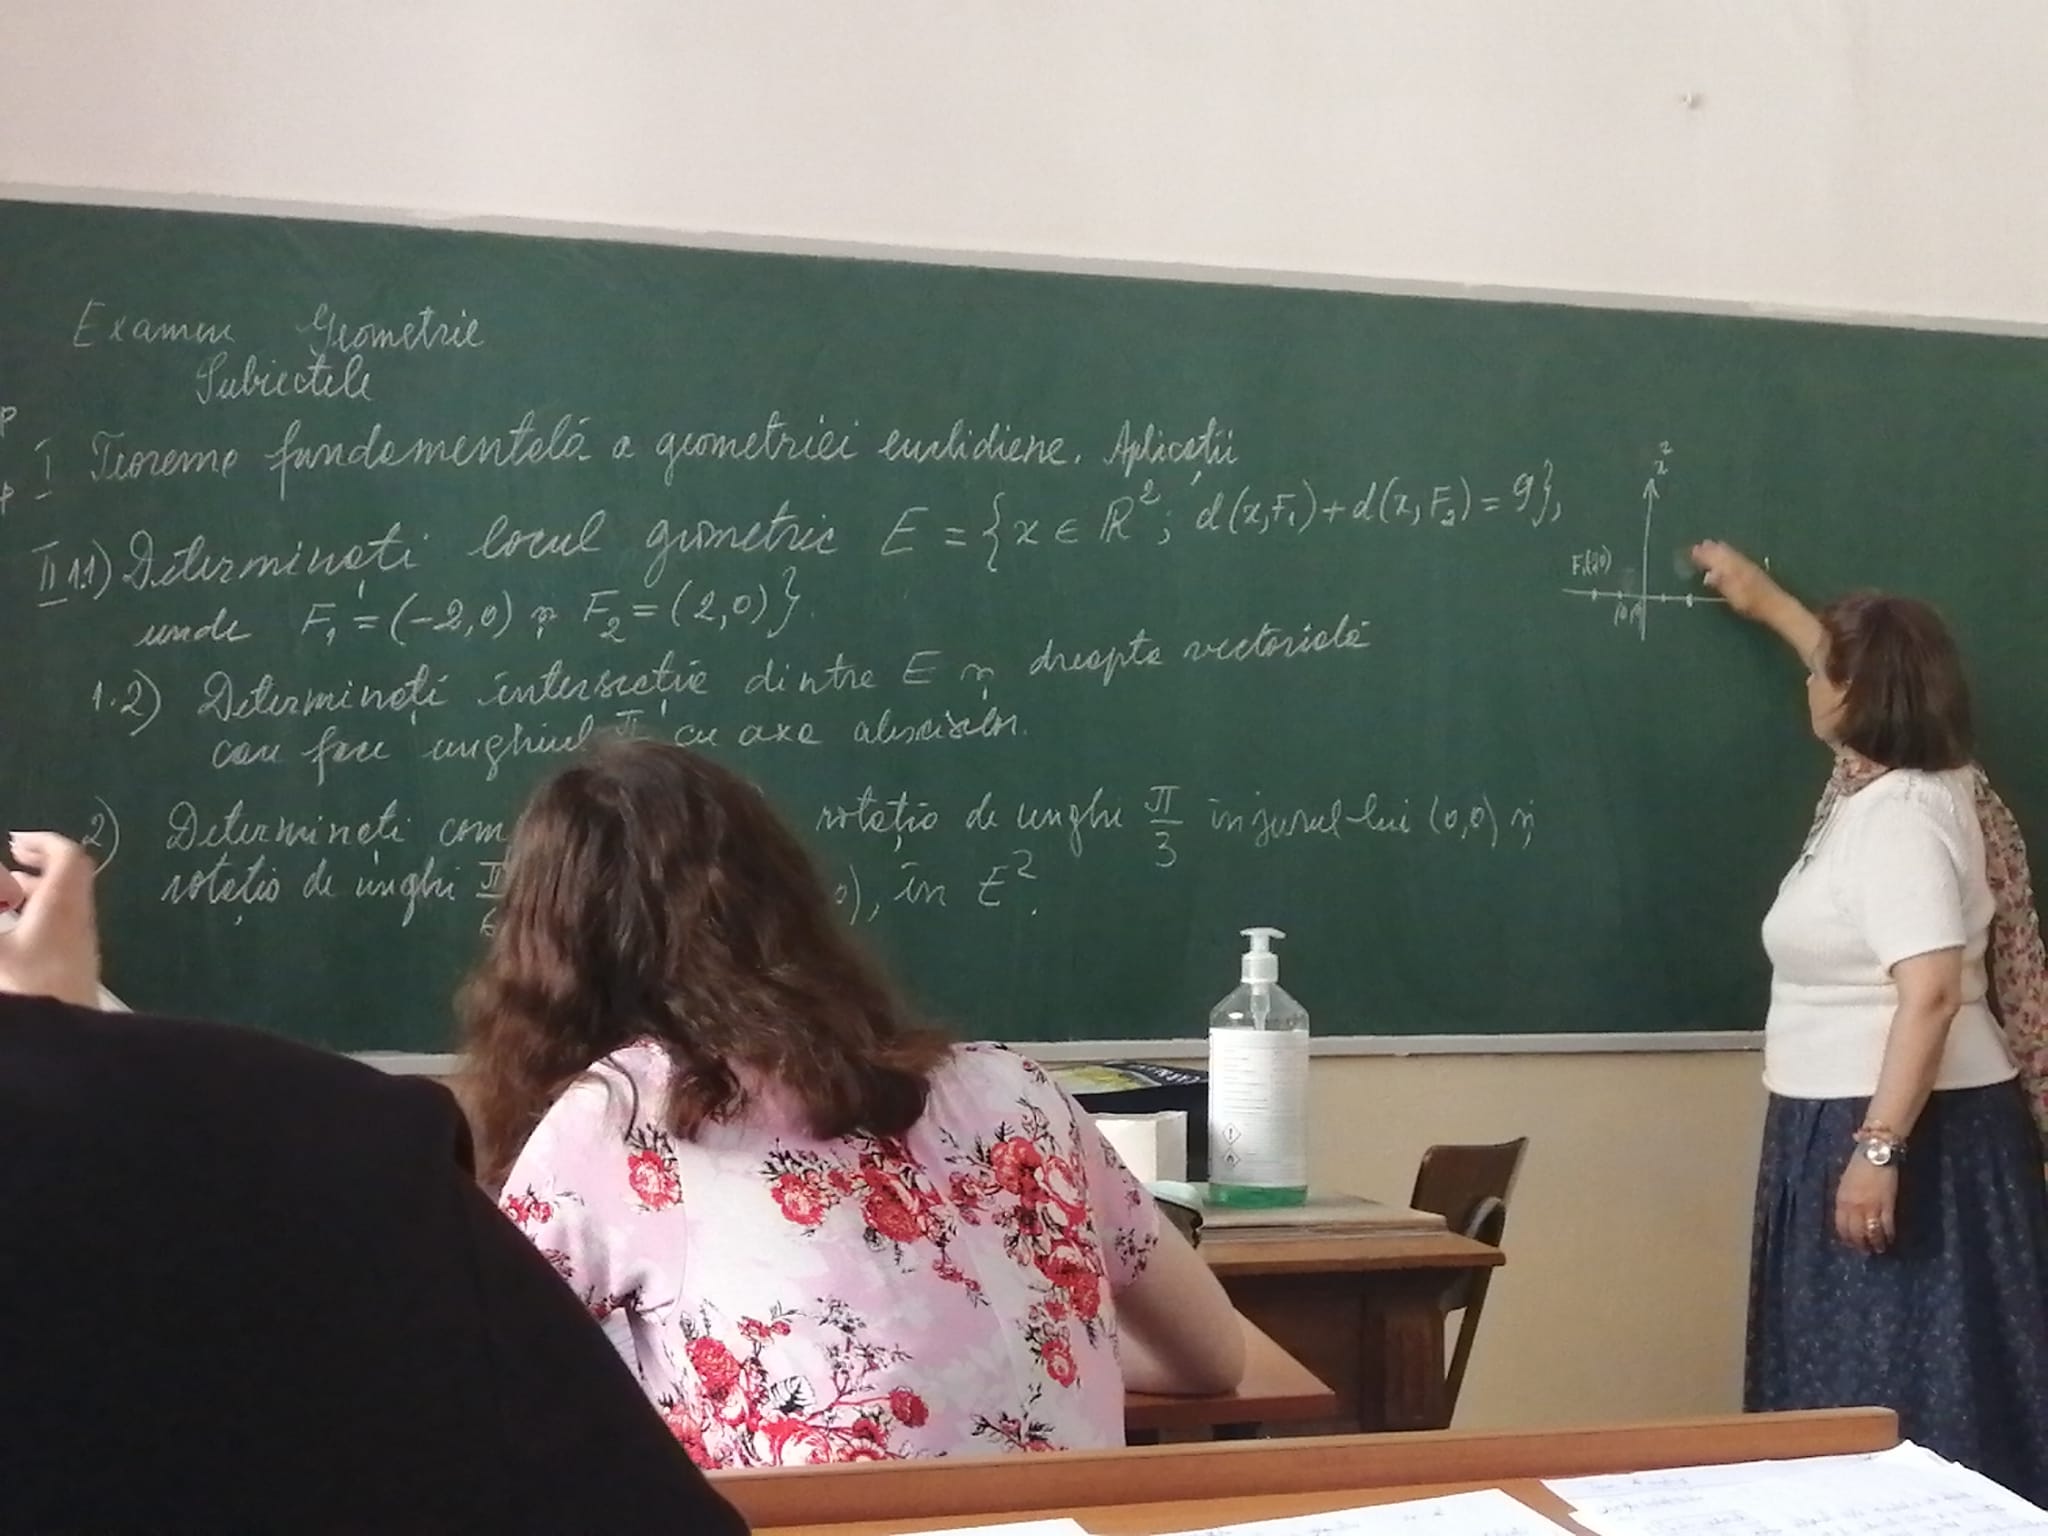 Examen Geometrie
Subiectele
I Teorema fundamentală a geometriei euclidiene. Aplicații
II 1.1) Determinați locul geometric E = {x ∈ ℝ²; d(x,F₁)+d(x,F₂)=9},
unde F₁=(-2,0) și F₂=(2,0)}.
1.2) Determinați intersecția dintre E și dreapta vectorială
care face unghiul π cu axa absciselor.
2) Determinați com rotația de unghi π/3 în jurul lui (0,0) și
rotația de unghi π/6 0), în E².
x²